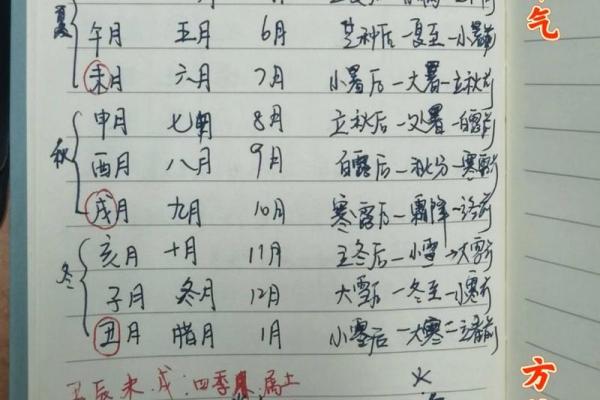 夏
午月 五月 6月 芒种后一夏至一小暑前
未月 六月 7月 小暑后一大暑一立秋前
秋
申月 七月 8月 立秋后一处暑一白露前
酉月 八月 9月 白露后一秋分一寒露前
戌月 九月 10月 寒露后一霜降一立冬前
冬
亥月 十月 11月 立冬后一小雪一大雪前
子月 冬月 12月 大雪后一冬至一小寒前
丑月 腊月 1月 小寒后一大寒一立春前
丑辰未戌:四季 属土
火
气
方